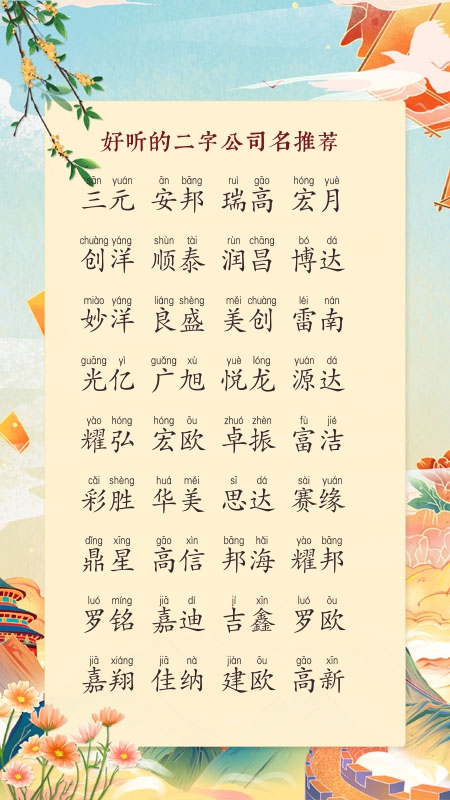 好听的二字公司名推荐
sān yuán ān bāng ruì gāo hóng yuè
三元 安邦 瑞高 宏月
chuàng yáng shùn tài rùn chāng bó dá
创洋 顺泰 润昌 博达
miào yáng liáng shèng měi chuàng léi nán
妙洋 良盛 美创 雷南
guāng yì guǎng xù yuè lóng yuán dá
光亿 广旭 悦龙 源达
yào hóng hóng ōu zhuó zhèn fù jié
耀弘 宏欧 卓振 富洁
cǎi shèng huá měi sī dá sài yuán
彩胜 华美 思达 赛缘
dǐng xīng gāo xìn bāng hǎi yào bāng
鼎星 高信 邦海 耀邦
luó míng jiā dí jí xīn luó ōu
罗铭 嘉迪 吉鑫 罗欧
jiā xiáng jiā nà jiàn ōu gāo xīn
嘉翔 佳纳 建欧 高新